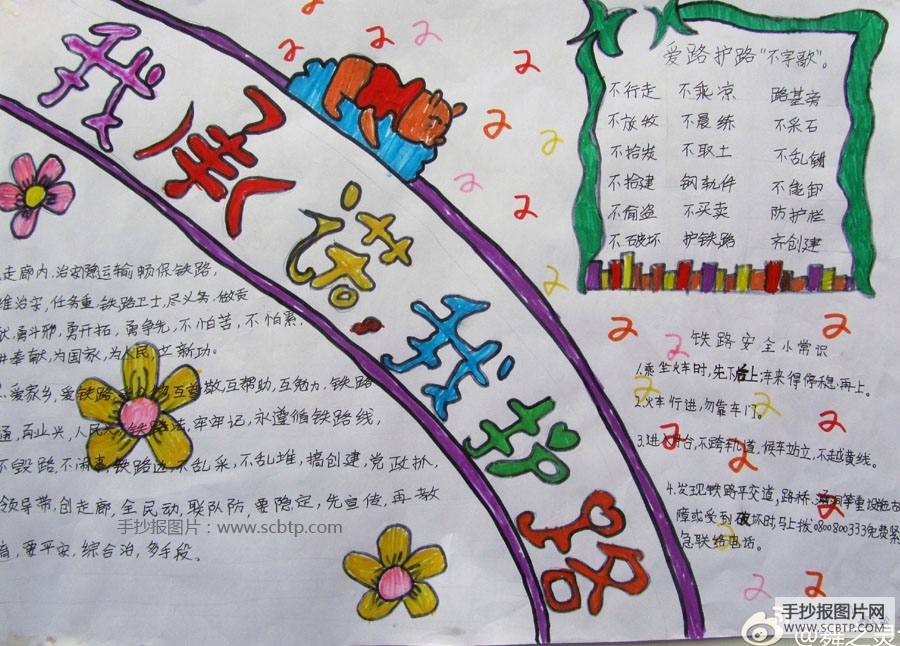 我承诺，我护路
爱路护路"不字歌"。
不行走 不乘凉 路基旁
不放牧 不晨练 不采石
不拾炭 不取土 不乱翻
不抢建 钢轨件 不能卸
不偷盗 不买卖 防护栏
不破坏 护铁路 齐创建
走廊内,治安 运输畅保铁路,
治安,任务重,铁路卫士,尽义务,做贡
献,勇斗邪,勇开拓,勇争先,不怕苦,不怕累,
奉献,为国家,为人民,立新功。
爱家乡,爱铁路, 互 敬,互帮助,互勉力,铁路
通,百业兴,人民 铁路 法,牢牢记,永遵循铁路线,
不毁路,不闹事,铁路边不乱采,不乱堆,搞创建,党政扒,
领导带,创走廊,全民动,联队防,要稳定,先宣传,再教
育,要平安,综合治,多手段、
手抄报图片：www.scbtp.com
铁路安全小常识
1.乘坐火车时,先下后上,等 停稳,再上。
2.火车行进,勿靠车门。
3.进入站台,不跨轨道,候车站立,不越黄线。
4.发现铁路平交道,路桥, 等重 设施古
障或受到破坏时马上拨0800800333免费紧
急联络电话。
手抄报图片网
WWW.SCBTP.COM
@舞之灵